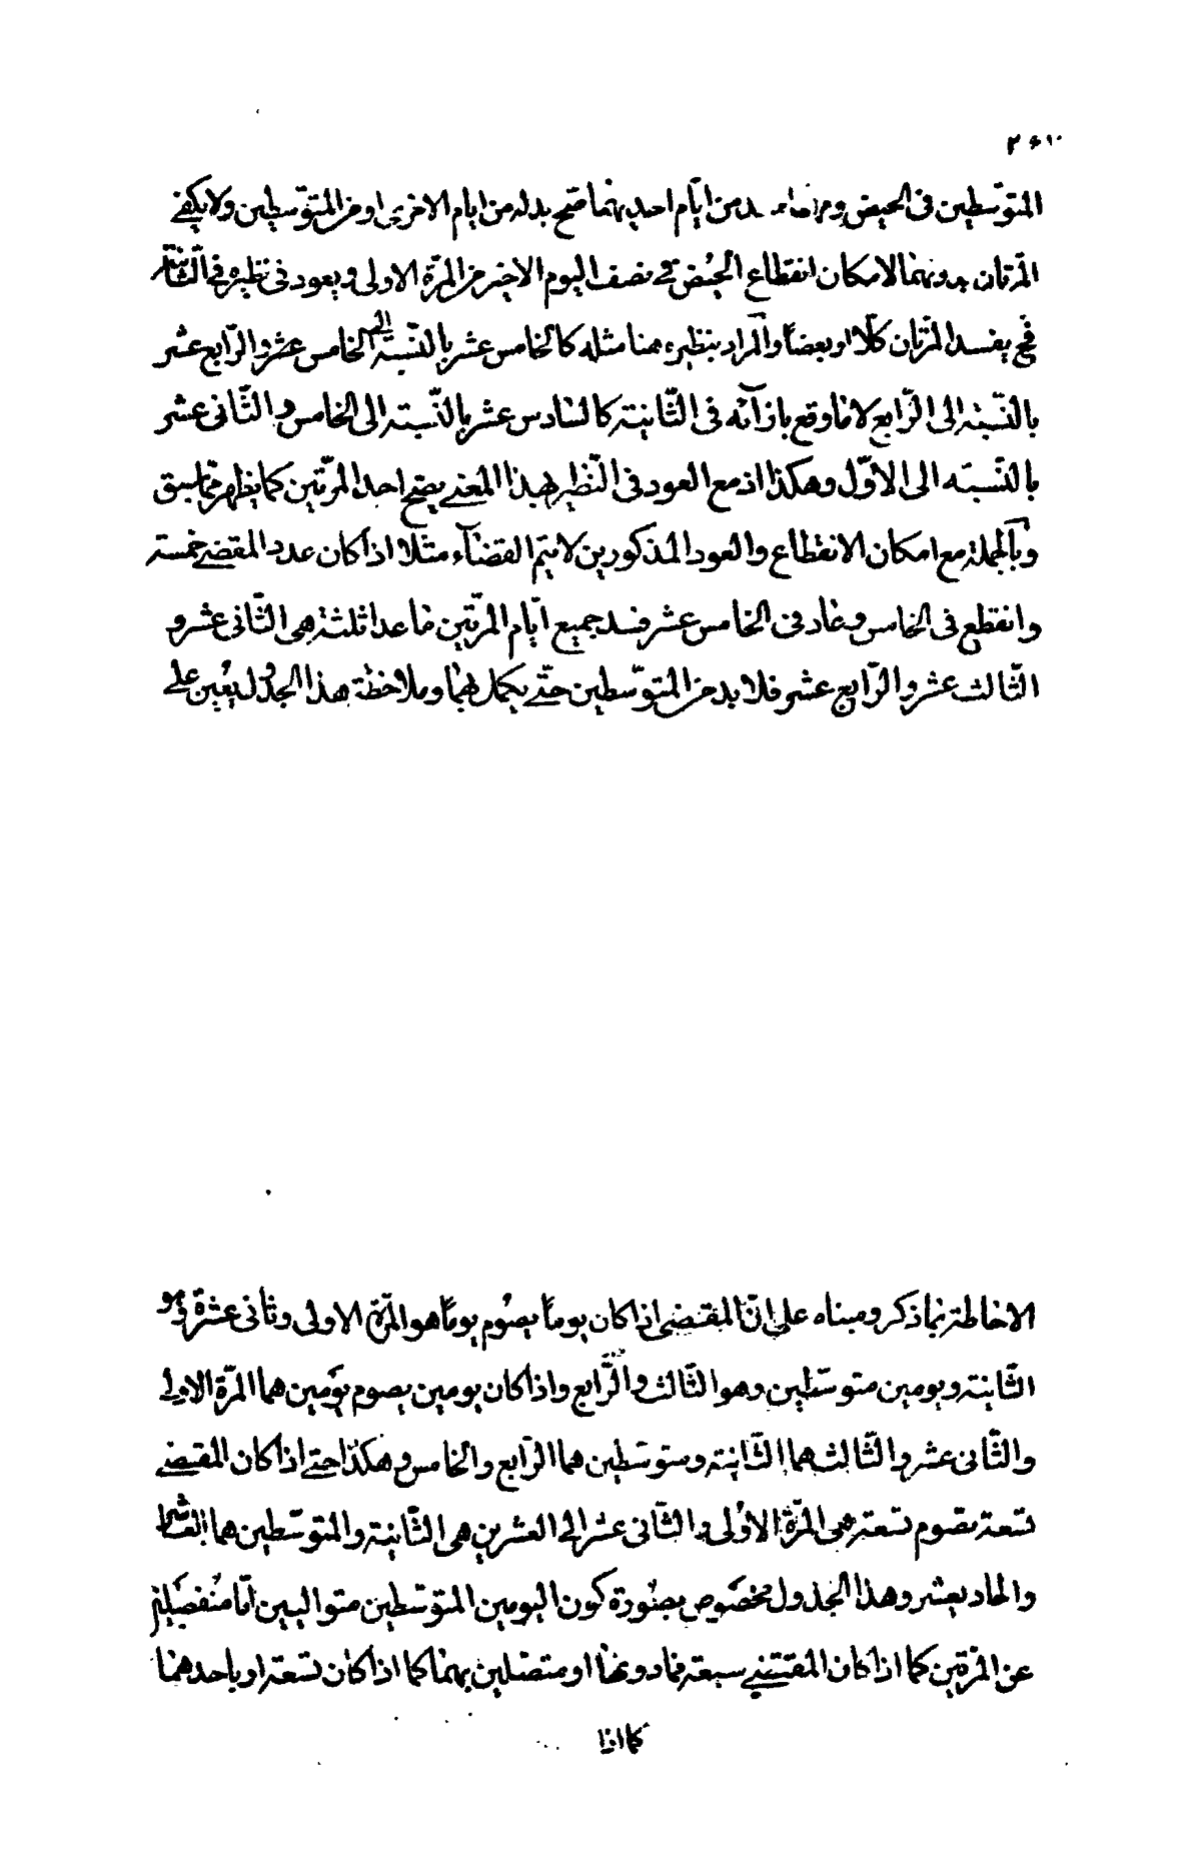 المتوسّطين فى الحيض من ايّام احديهما صحّ بدله من ايام الاخرى او من المتوسّطين ولا يكفى
المرّتان بدونهما لامكان انقطاع الحيض فى نصف اليوم الاخير من المرّة الاولى ويعود فى نظيره فى الثّانية
فح يفسد المرّتان كلّا او بعضاً والمراد بنظيره هنا مثله كالخامس عشر بالنّسبة الى الخامس عشر والرّابع عشر
بالنّسبة الى الرّابع لا ما وقع بازآئه فى الثّانية كالسّادس عشر بالنّسبته الى الخامس والثّانى عشر
بالنّسبته الى الاوّل وهكذا اذ مع العود فى النّظير بهذا المعنى يصحّ احد المرّتين كما يظهر ممّا سبق
وبالجملة مع امكان الانقطاع والعود المذكورين لا يتم القضآء مثلّا اذا كان عدد المقضى خمسته
وانقطع فى الخامس وعاد فى الخامس عشر فسد جميع ايّام المرّتين ما عدا ثلثة هى الثّانى عشر و
الثّالث عشر والرّابع عشر فلا بد من المتوسّطين حتّى يكمل بهما وملاحظة هذا الجدول يعين على
الاحاطة بما ذكر ومبناه على انّ المقضى اذا كان يوماً يصوم يوماً هو المرّة الاولى وثانى عشرة وهو
الثّانية ويومين متوسّطين وهو الثّالث والرّابع واذا كان يومين يصوم يومين هما المرّة الاولى
والثّانى عشر والثّالث هما الثّانية ومتوسّطين هما الرّابع والخامس وهكذا حتى اذا كان المقضى
تسعة تصوم تسعة هى المرّة الاولى والثّانى عشر الى العشرين هى الثّانية والمتوسّطين هما العاشر
والحاديعشر وهذا الجدول مخصوص بصورة كون اليومين المتوسّطين متواليين امّا منفصلين
عن المرّتين كما اذا كان المقتضى سبعة فما دونها او متصلين بهما كما اذا كان تسعة او باحدهما
كما اذا